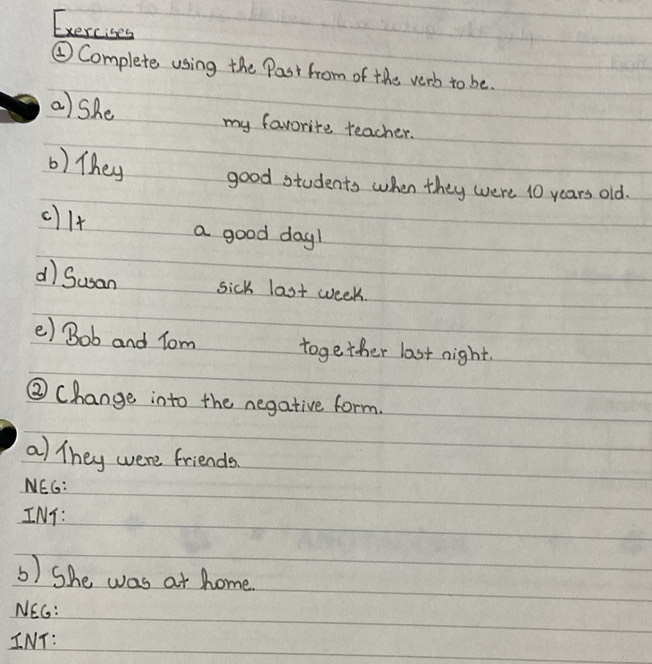 Exercises
① Complete using the Past from of the verb to be.
a) She my favorite teacher.
b) They good students when they were 10 years old.
c) It a good day!
d) Susan sick last week.
e) Bob and Tom together last night.
② Change into the negative form.
a) They were friends.
NEG:
INT:
b) She was at home.
NEG:
INT: